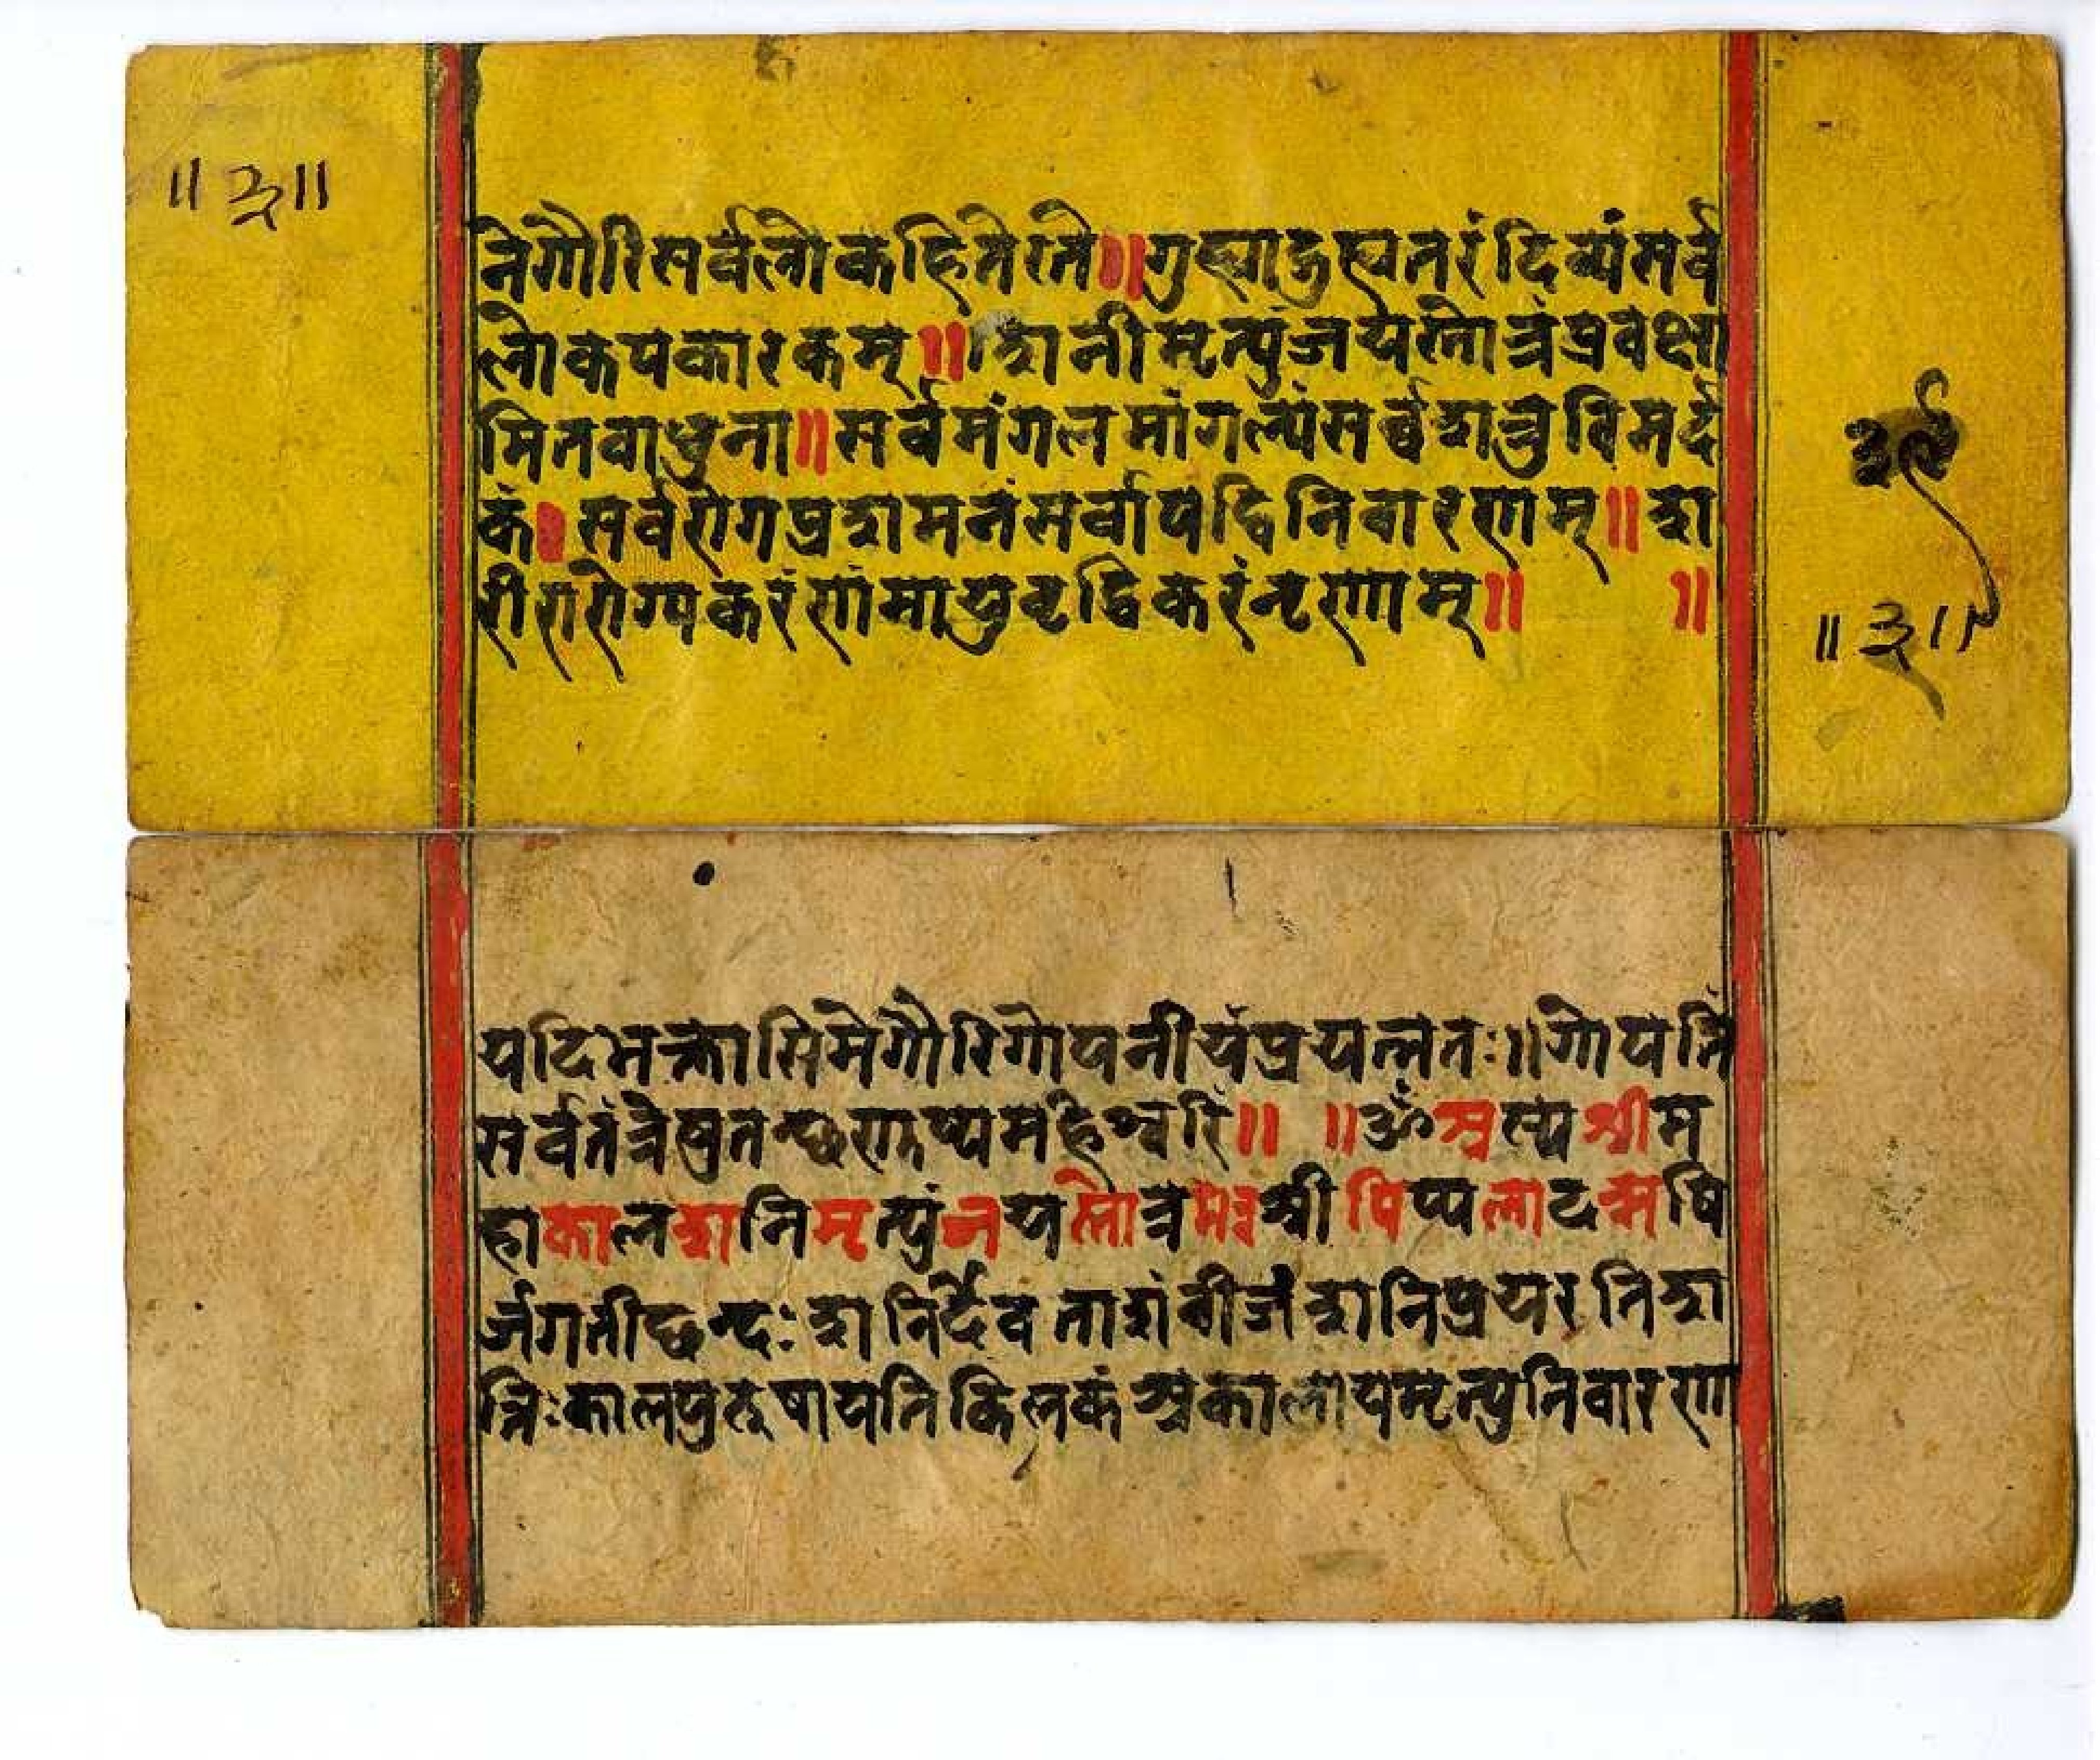 ॥ ३ ॥
नेगौरिसर्वलोकहितेरते॥गुह्याद्गुह्यतरंदिव्यंसर्व
लोकपकारकम्॥शनीमृत्युंजयस्तोत्रंप्रवक्षा
मितवाधुना॥सर्वमंगलमांगल्यंसर्व्वशत्रुविमर्द
कं।सर्वरोगप्रशमनंसर्वापद्विनिवारणम्॥श
रीरारोग्यकरंणांमायुवृद्धिकरंनृणाम्॥ ॥
॥ ३ ॥
यदिभक्तासिमेगौरिगोपनीयंप्रयत्नतः॥गोपनि
सर्वतंत्रेषुतच्छणुष्यमहेश्वरि॥ ॥ॐअस्यश्रीम
हाकालशनिमृत्युंजयस्तोत्रमंत्रश्रीपिप्पलादऋषि
र्जगतीछन्दः शनिर्देवताशंबीजंशनिप्रयरनिश
क्तिःकालपुरूषायनिकिलकंअकालायमृत्युनिवारणा